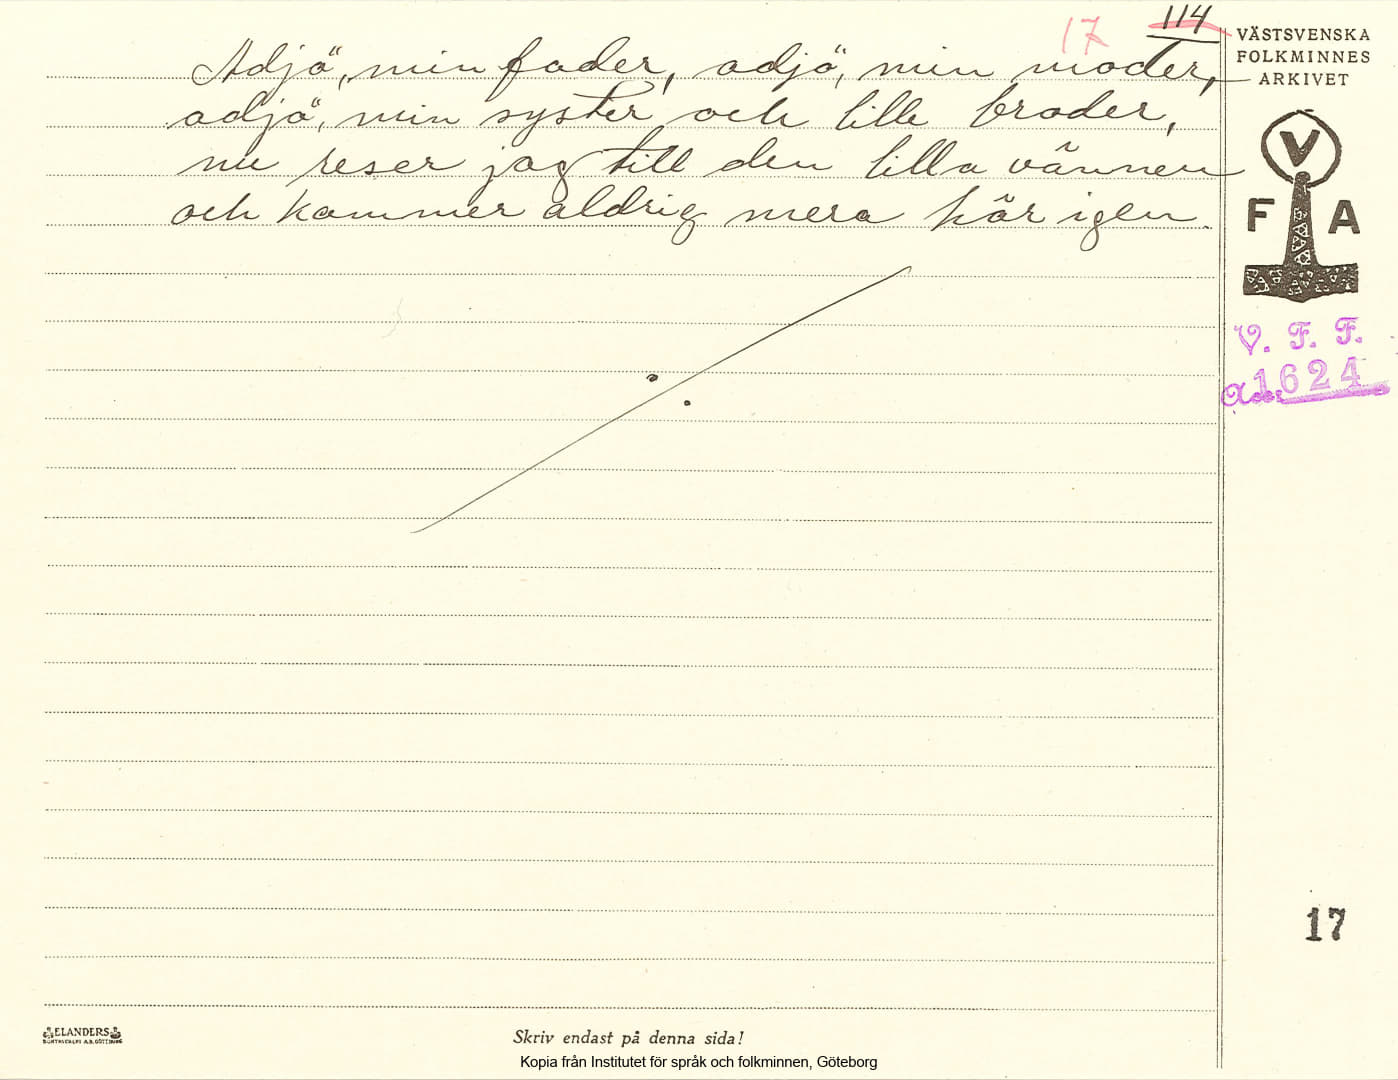 17 114
Adjö, min fader, adjö, min moder,
adjö, min syster och lille broder,
nu reser jag till den lilla vännen
och kommer aldrig mera här igen.
VÄSTSVENSKA
FOLKMINNES
ARKIVET
V
F A
V. F. F.
1624
17
ELANDERS
Skriv endast på denna sida!
Kopia från Institutet för språk och folkminnen, Göteborg